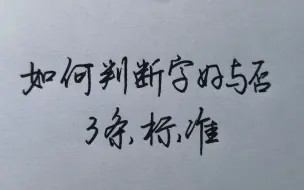 如何判断字好与否
3条标准